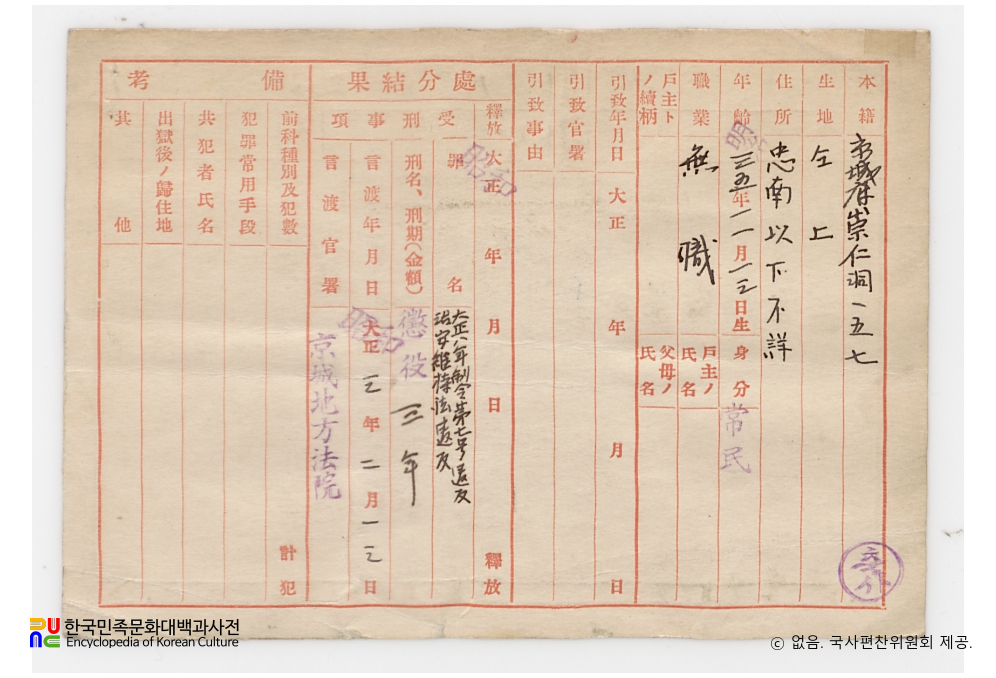 本籍 京城府崇仁洞一五七
生地 仝上
住所 忠南以下不詳
年齡 明治三五年一一月一三日生
身分 常民
職業 無職
戶主ノ氏名
戶主トノ續柄
父母ノ氏名
引致年月日 大正 年 月 日
引致官署
引致事由
處分結果
釋放 大正 昭和 年 月 日 釋放
受刑事項
罪名 大正八年制令第七号違反
治安維持法違反
刑名、刑期(金額) 懲役 三年
言渡年月日 大正 昭和 三年二月一三日
言渡官署 京城地方法院
備考
前科種別及犯數 計 犯
犯罪常用手段
共犯者氏名
出獄後ノ歸住地
其他
한국민족문화대백과사전
Encyclopedia of Korean Culture
ⓒ 없음. 국사편찬위원회 제공.